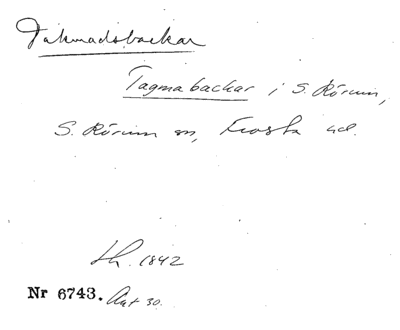 Takmadsbackar
Tagmabackar i S. Rörum,
S. Rörum sn, Frosta hd.
Lh. 1842
Nr 6743. Ant 30.